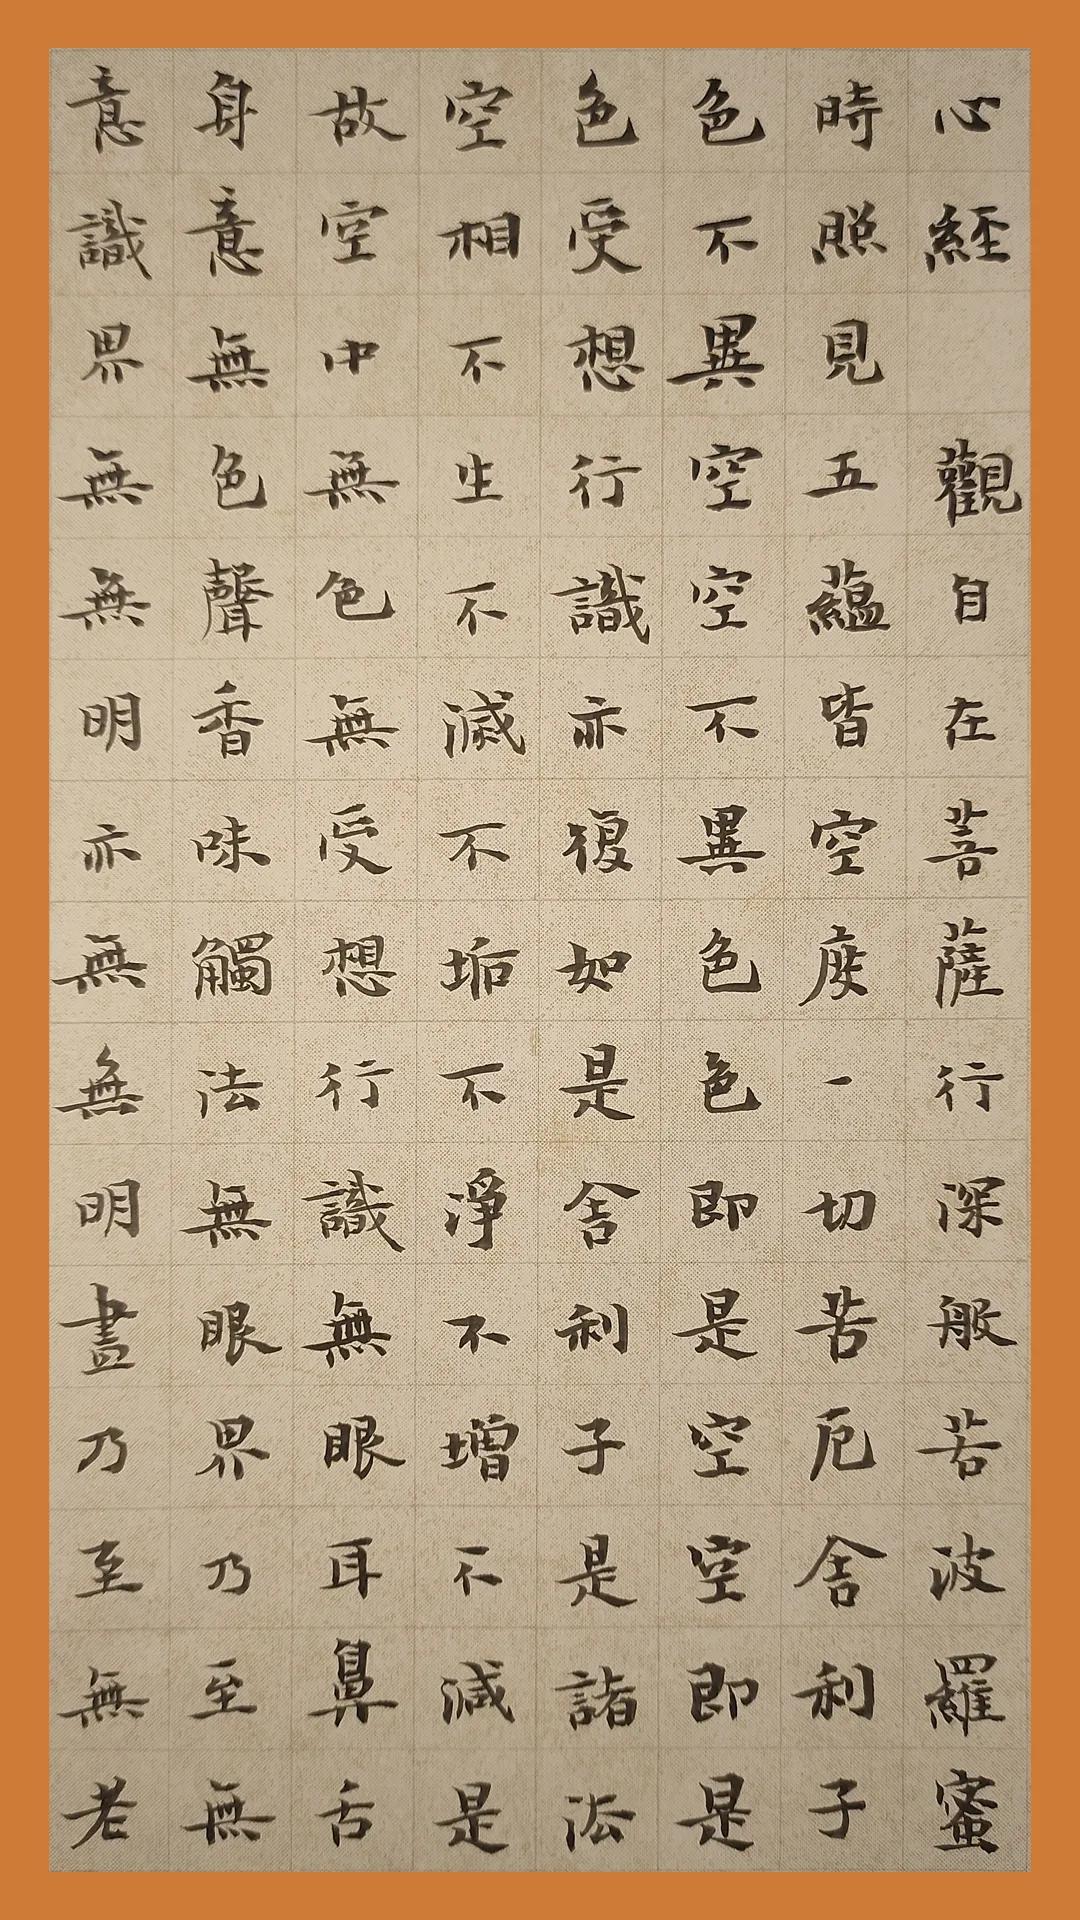 心經　觀自在菩薩行深般若波羅蜜
時照見五蘊皆空度一切苦厄舍利子
色不異空空不異色色即是空空即是
色受想行識亦復如是舍利子是諸法
空相不生不滅不垢不淨不增不減是
故空中無色無受想行識無眼耳鼻舌
身意無色聲香味觸法無眼界乃至無
意識界無無明亦無無明盡乃至無老